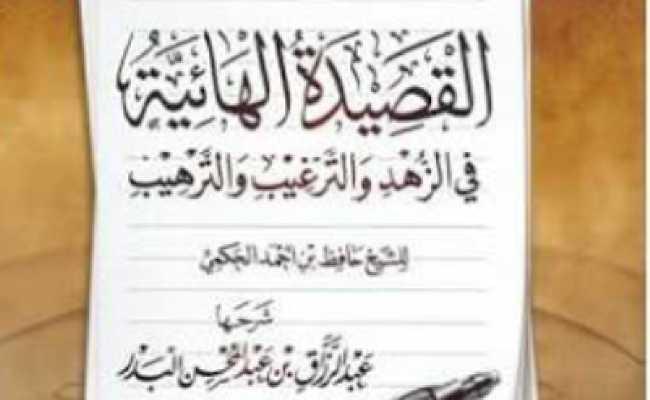 القَصِيدَةُ الهَائِيَّة
في الزُّهْدِ وَالتَّرغِيْبِ وَالتَّرْهِيْبِ
للشيخ حافظ بن أحمد الحكمي
شرحها
عبد الرزاق بن عبد المحسن البدر